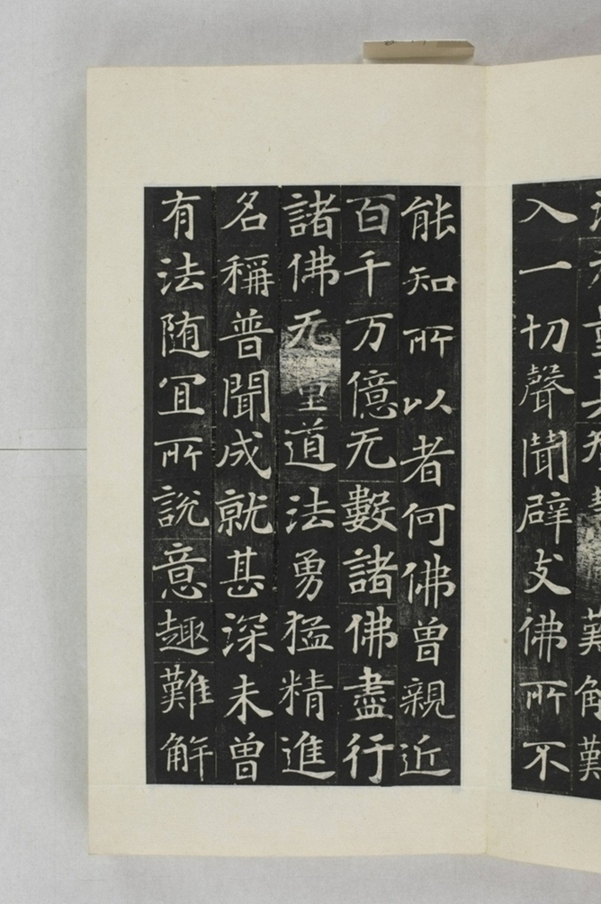 深无量其智慧難解難
入一切聲聞辟支佛所不
能知所以者何佛曾親近
百千万億无數諸佛盡行
諸佛无量道法勇猛精進
名稱普聞成就甚深未曾
有法随冝所說意趣難解